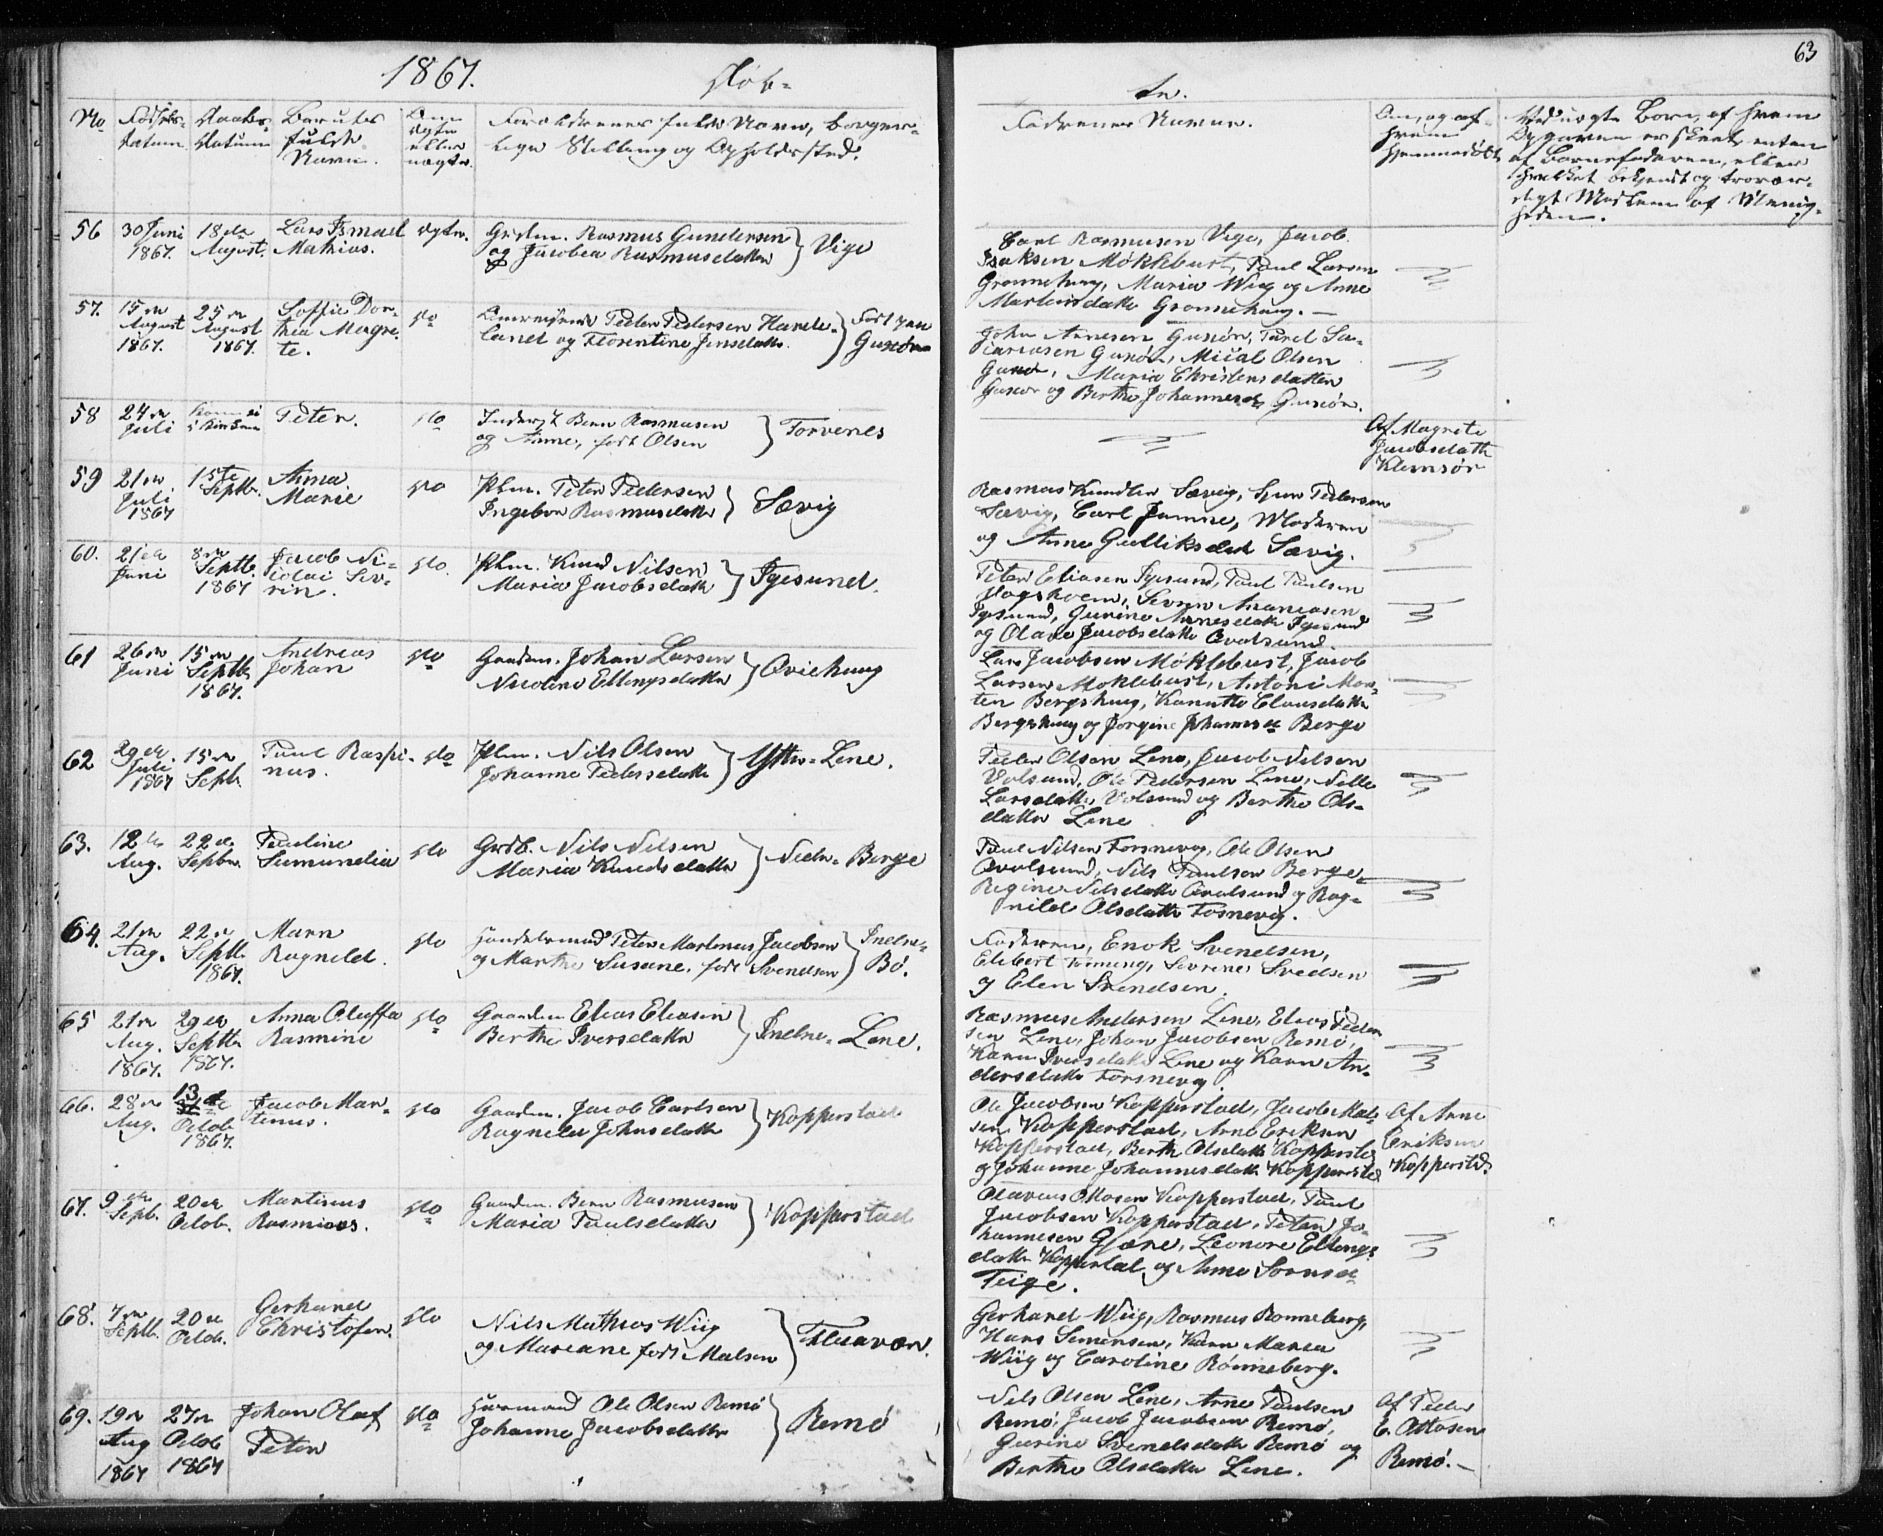 63
1867.
Døb-
te.
No
Fødsels-
datum.
Daabs-
Datum
Barnets
fulde
Navn.
Om
ægte
eller
uægte.
Forældrenes fulde Navn, borger-
lige Stilling og Opholdssted.
Faddernes Navne.
Om, og af
hvem
hjemmedøbt
Ved uægte Børn, af hvem
Opgaven er skeet, enten
af Barnefaderen, eller
hvilket bekjendt og trovær-
digt Medlem af Menig-
heden.
56
30 Juni
1867.
18de
August.
Lars Ismael
Mathias.
ægte.
Rasmus Gundersen
og Jacobea Rasmusdatter
Vige
Carl Rasmusen Vige, Jacob
Isaksen Møklebust, Paul Larsen
Grønnehaug, Maria Wiig og Anne
Martensdatter Grønnehaug.
57.
15de
August
1867.
25de
August
1867.
Soffie Dor-
thea Magre-
te.
do
Omreisende Peder Pedersen Hareide-
land og Florentine Jensdatter
Født paa
Gurskøn
John Arnesen Gurskøn,
Gurskøn, Mical Olsen
Maria Christensdatter
og Berthe Johannesd.
58
24de
Juli
Kom ei
Peter.
do
Bern Rasmusen
og Anne, født Olsen
Torvenes
Af Magrete
Jacobsdatter
59
21de
Juli
1867
15de
Septbr.
Anna
Marie
do
Plm. Peter Pedersen
Ingebor Rasmusdatter
Sævig
Rasmus Knudsen Sævig, Sjur Pedersen
Sævig, Carl Moderen
og Anne Gulliksdatr Sævig.
60.
21de
Juni
8de
Septbr.
1867
Jacob Ni-
colai Sev-
rin.
do.
Plm. Knud Nilsen
Maria Jacobsdatter
Igesund.
Peter Eliasen Igesund, Paul Paulsen
Severin Ananiasen
Igesund, Gurine Arnesdatter Igesund
og Olave Jacobsdatter Qvalsund.
61
26de
Juni
15de
Septbr.
1867.
Andreas
Johan
do
Gaardm. Johan Larsen
Nicoline Ellingsdatter
Qviehaug
Lars Jacobsen Møklebust, Jacob
Larsen Møklebust, Antoni Mor-
ten Bergshaug, Clausdatter
Bergshaug og Jorgine Johannesd. Berge
62
29de
Juli
1867
15de
Septb.
Paul Raspi-
nus.
do
Plm. Nils Olsen
Johanne Pedersdatter
Ytter-Lene.
Peder Olsen Lene, Jacob Nilsen
Volsund, Ole Pedersen Lene, Nille
Larsdatter, Volsund og Berthe Ols-
datter Lene
63.
12te
Aug.
22de
Septbr.
Pauline
Samunelia
do
Grdb. Nils Nilsen
Maria Knudsdatter
Nedre-Berge
Paul Nilsen Torsnevig, Ole Olsen
Qvalsund, Nils Paulsen Berge,
Regine Nilsdatter Qvalsund og Rag-
nild Olsdatter Torsnevig.
64.
21de
Aug.
22de
Septbr.
1867.
Maren
Ragnild.
do
Handelsmand Peter Martenus Jacobsen
og Marthe Susane, født Svendsen
Indre-
Bø.
Faderen, Enok Svendsen,
Elibert Severine Svedsen
og Elen Svendsen.
65
21de
Aug.
1867.
29de
Septbr.
1867.
Anna Oluffa
Rasmine
do
Gaardm. Elias Eliasen
Berthe Iversdatter
Indre-Lene.
Rasmus Andersen Lene, Elias Peder-
sen Lene, Johan Jacobsen Remø,
Karen Iversdatter Lene og Karen An-
dersdatter Torsnevig.
66.
28de
Aug.
13de
Octob.
1867.
Jacob Mar-
tinus.
do
Gaardm. Jacob Carlsen
Ragnild Johnsdatter
Kopperstad
Ole Jacobsen Kopperstad, Jacob Mat-
sen Kopperstad, Arne Eriksen
Kopperstad, Berthe Olsdatter Kopperstd
og Johanne Johannesdatter Kopperstd
Af Arne
Eriksen
Kopperstd.
67.
9de
Septb.
20de
Octob.
Martinus
Rasmines.
do
Gaardm. Bern Rasmusen
Maria Paulsdatter
Kopperstad
Olavius Ottosen Kopperstad, Paul
Jacobsen Kopperstad, Peter Jo-
hannesen Gjære, Leonore Ellings-
datter Kopperstad og Anne
Teige.
68.
7de
Septb.
20de
Octob.
Gerhard
Christofer.
do
Nils Mathias Wiig
og Mariane født Malsen
Fluavær.
Gerhard Wiig, Rasmus Rønneberg,
Hans Simensen, Karen Maria
Wiig og Caroline Rønneberg.
69.
19de
Aug
1867
27de
Octob
1867
Johan Olaf
Peter
do
Huusmand Ole Olsen Remø
Johanne Jacobsdatter
Remø
Nils Olsen Lene, Arne Paulsen
Remø, Jacob Jacobsen Remø,
Gurine Svendsdatter Remø og
Berthe Olsdatter Lene.
Af Peder
E. Ottosen
Remø.